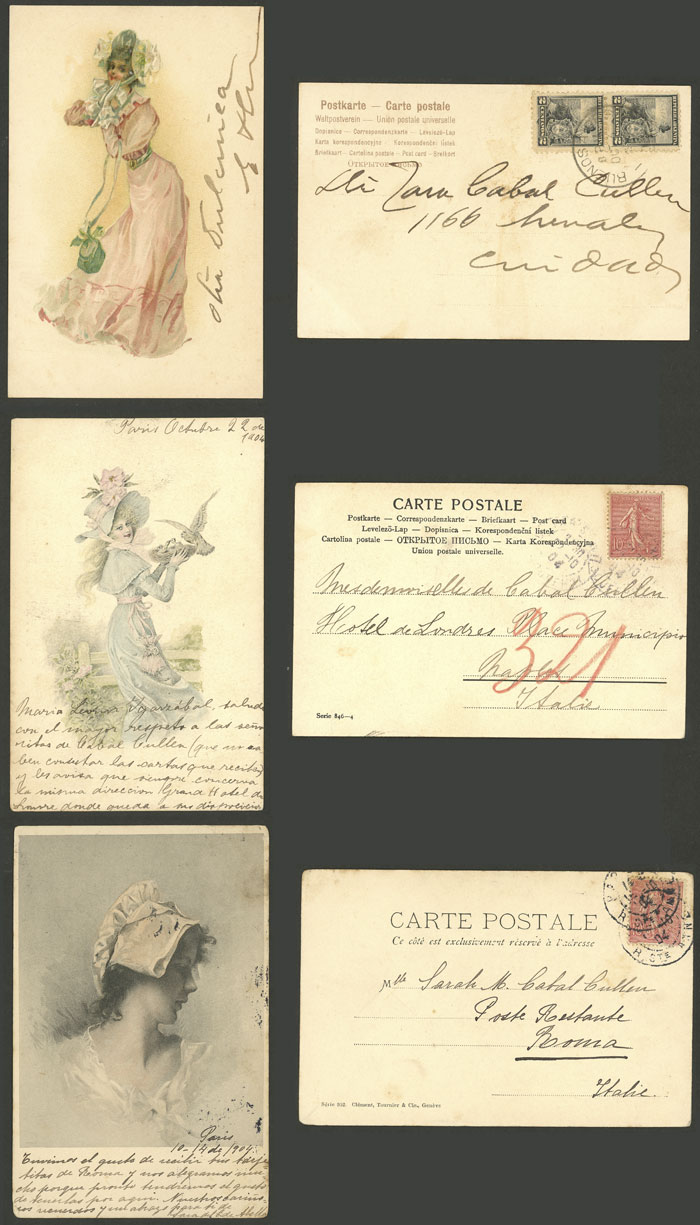 Sta Dulcinea
Postkarte — Carte postale
Weltpostverein — Union postale universelle
Dopisnica — Correspondenzkarte — Levelező-Lap
Karta korespondencyjna — Korespondenční lístek
Briefkaart — Cartolina postale — Post card — Brefkort
Открытое письмо
BUENOS
Sta Sara Cabal Cullen
1166
Ciudad
Paris Octubre 22 de
1904
saluda
con el mayor respeto a las seño
ritas de Cabal Cullen (que no sa
ben contestar las cartas que reciben)
y les avisa que siempre conserva
la misma direccion Grand Hotel du
Louvre donde queda a su disposición
CARTE POSTALE
Postkarte — Correspondenzkarte — Briefkaart — Post card
Levelező-Lap — Dopisnica — Korespondenční lístek
Cartolina postale — ОТКРЫТОЕ ПИСЬМО — Karta Korespondencyjna
Union postale universelle.
Mesdemoiselles de Cabal Cullen
Hotel de Londres Place Municipio
321
Naples
Italie
Serie 846—4
Paris
10-14 de 1904
Tuvimos el gusto de recibir tus tarje
titas de Roma y nos alegramos mu
cho porque pronto tendremos el gusto
de tenerlas por aqui. Nuestros cariño
sos recuerdos y un abrazo para ti de
CARTE POSTALE
Ce côté est exclusivement réservé à l'adresse
Mlle Sarah M. Cabal Cullen
Poste Restante
Roma
Italie
Série 102. Clément, Tournier & Cie., Genève